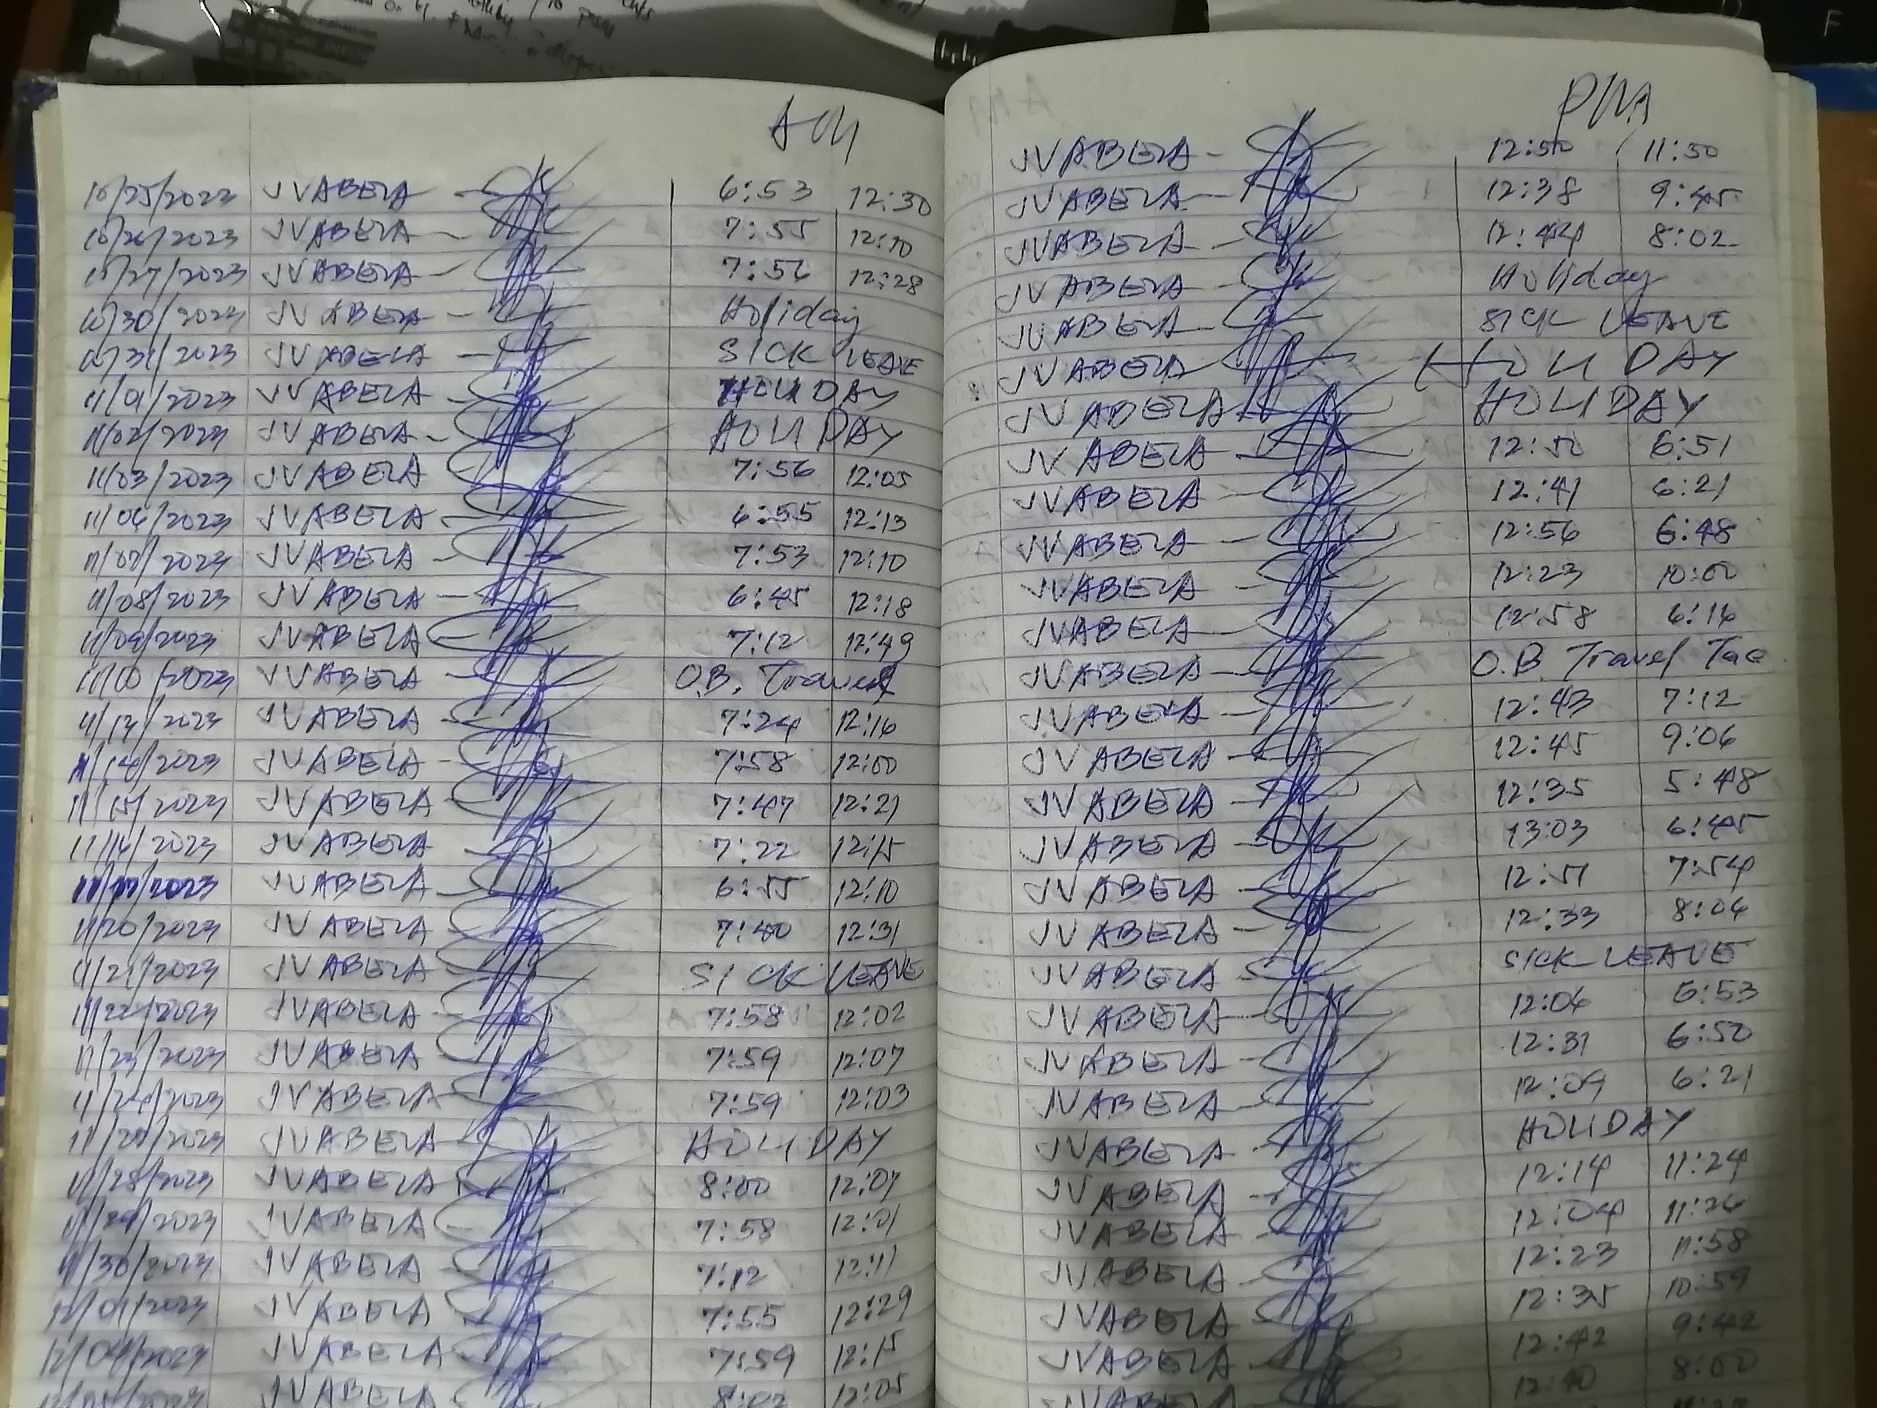 AM
10/25/2023 JVABELA 6:53 12:30
10/26/2023 JVABELA 7:55 12:10
10/27/2023 JVABELA 7:56 12:28
10/30/2023 JVABELA Holiday
10/31/2023 JVABELA SICK LEAVE
11/01/2023 JVABELA HOLIDAY
11/02/2023 JVABELA HOLIDAY
11/03/2023 JVABELA 7:56 12:05
11/06/2023 JVABELA 6:55 12:13
11/07/2023 JVABELA 7:53 12:10
11/08/2023 JVABELA 6:45 12:18
11/09/2023 JVABELA 7:12 12:49
11/10/2023 JVABELA O.B. Travel
11/13/2023 JVABELA 7:24 12:16
11/14/2023 JVABELA 7:58 12:00
11/15/2023 JVABELA 7:47 12:21
11/16/2023 JVABELA 7:22 12:15
11/17/2023 JVABELA 6:55 12:10
11/20/2023 JVABELA 7:40 12:31
11/21/2023 JVABELA SICK LEAVE
11/22/2023 JVABELA 7:58 12:02
11/23/2023 JVABELA 7:59 12:07
11/24/2023 JVABELA 7:59 12:03
11/27/2023 JVABELA HOLIDAY
11/28/2023 JVABELA 8:00 12:07
11/29/2023 JVABELA 7:58 12:01
11/30/2023 JVABELA 7:12 12:11
12/01/2023 JVABELA 7:55 12:29
12/04/2023 JVABELA 7:59 12:15
12/05/2023 JVABELA 8:02 12:05
PM
JVABELA 12:50 11:50
JVABELA 12:38 9:45
JVABELA 12:44 8:02
JVABELA Holiday
JVABELA SICK LEAVE
JVABELA HOLIDAY
JVABELA HOLIDAY
JVABELA 12:50 6:51
JVABELA 12:41 6:21
JVABELA 12:56 6:48
JVABELA 12:23 10:00
JVABELA 12:58 6:16
JVABELA O.B. Travel Tac
JVABELA 12:43 7:12
JVABELA 12:45 9:06
JVABELA 12:35 5:48
JVABELA 13:03 6:45
JVABELA 12:51 7:54
JVABELA 12:33 8:06
JVABELA SICK LEAVE
JVABELA 12:06 6:53
JVABELA 12:31 6:50
JVABELA 12:09 6:21
JVABELA HOLIDAY
JVABELA 12:14 11:24
JVABELA 12:04 11:26
JVABELA 12:23 11:58
JVABELA 12:35 10:59
JVABELA 12:42 9:42
JVABELA 12:40 8:00